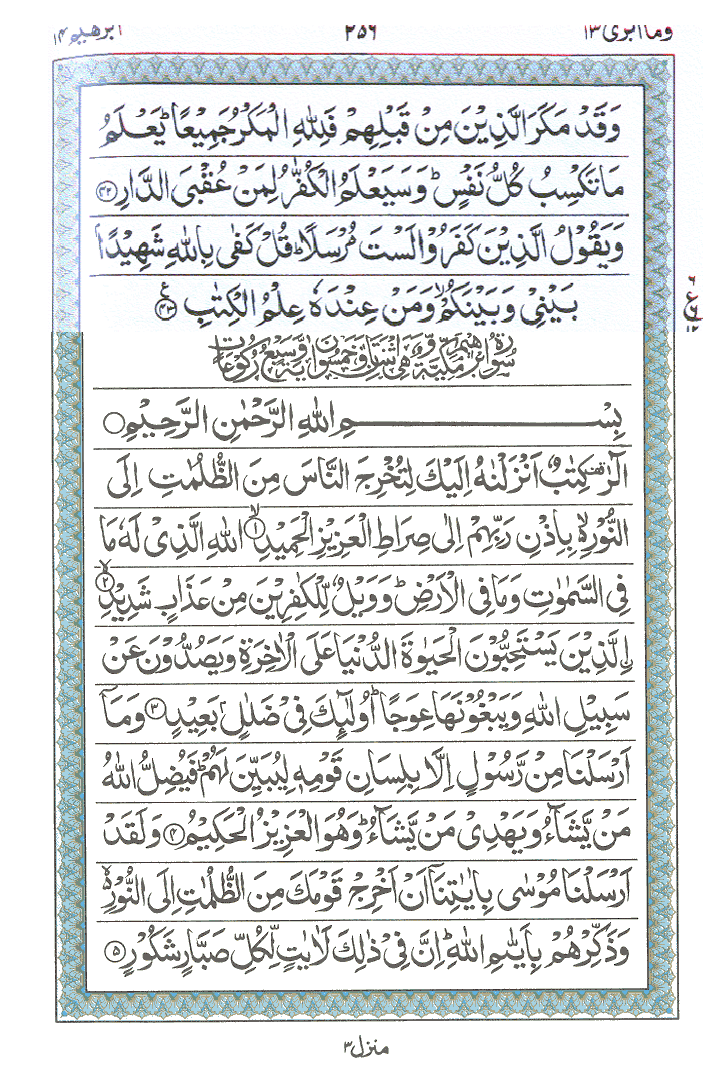 وما ابری ۱۳ ۲۵۶ ابرھیم ۱۴
وَقَدْ مَكَرَ الَّذِيْنَ مِنْ قَبْلِهِمْ فَلِلّٰهِ الْمَكْرُ جَمِيْعًا ؕ يَعْلَمُ
مَا تَكْسِبُ كُلُّ نَفْسٍ ؕ وَسَيَعْلَمُ الْكُفّٰرُ لِمَنْ عُقْبَى الدَّارِ ۴۲
وَيَقُوْلُ الَّذِيْنَ كَفَرُوْا لَسْتَ مُرْسَلًا ؕ قُلْ كَفٰى بِاللّٰهِ شَهِيْدًۢا
بَيْنِيْ وَبَيْنَكُمْ ۙ وَمَنْ عِنْدَهٗ عِلْمُ الْكِتٰبِ ۴۳ ع
۶
ع ۶
۱۲
سُوْرَةُ اِبْرٰهِيْمَ مَكِّيَّةٌ وَّهِيَ اثْنَتَانِ وَخَمْسُوْنَ اٰيَةً وَّسَبْعُ رُكُوْعَاتٍ
بِسْمِ اللّٰهِ الرَّحْمٰنِ الرَّحِيْمِ
الٓرٰ ۫ كِتٰبٌ اَنْزَلْنٰهُ اِلَيْكَ لِتُخْرِجَ النَّاسَ مِنَ الظُّلُمٰتِ اِلَى
النُّوْرِ ۙ۬ بِاِذْنِ رَبِّهِمْ اِلٰى صِرَاطِ الْعَزِيْزِ الْحَمِيْدِ ۙ ۱ اللّٰهِ الَّذِيْ لَهٗ مَا
فِي السَّمٰوٰتِ وَمَا فِي الْاَرْضِ ؕ وَوَيْلٌ لِّلْكٰفِرِيْنَ مِنْ عَذَابٍ شَدِيْدِ ۙ ۲
ۨالَّذِيْنَ يَسْتَحِبُّوْنَ الْحَيٰوةَ الدُّنْيَا عَلَى الْاٰخِرَةِ وَيَصُدُّوْنَ عَنْ
سَبِيْلِ اللّٰهِ وَيَبْغُوْنَهَا عِوَجًا ؕ اُولٰٓئِكَ فِيْ ضَلٰلٍۭ بَعِيْدٍ ۳ وَمَاۤ
اَرْسَلْنَا مِنْ رَّسُوْلٍ اِلَّا بِلِسَانِ قَوْمِهٖ لِيُبَيِّنَ لَهُمْ ؕ فَيُضِلُّ اللّٰهُ
مَنْ يَّشَآءُ وَيَهْدِيْ مَنْ يَّشَآءُ ؕ وَهُوَ الْعَزِيْزُ الْحَكِيْمُ ۴ وَلَقَدْ
اَرْسَلْنَا مُوْسٰى بِاٰيٰتِنَاۤ اَنْ اَخْرِجْ قَوْمَكَ مِنَ الظُّلُمٰتِ اِلَى النُّوْرِ ۙ۬
وَذَكِّرْهُمْ بِاَيّٰىمِ اللّٰهِ ؕ اِنَّ فِيْ ذٰلِكَ لَاٰيٰتٍ لِّكُلِّ صَبَّارٍ شَكُوْرٍ ۵
منزل ۳